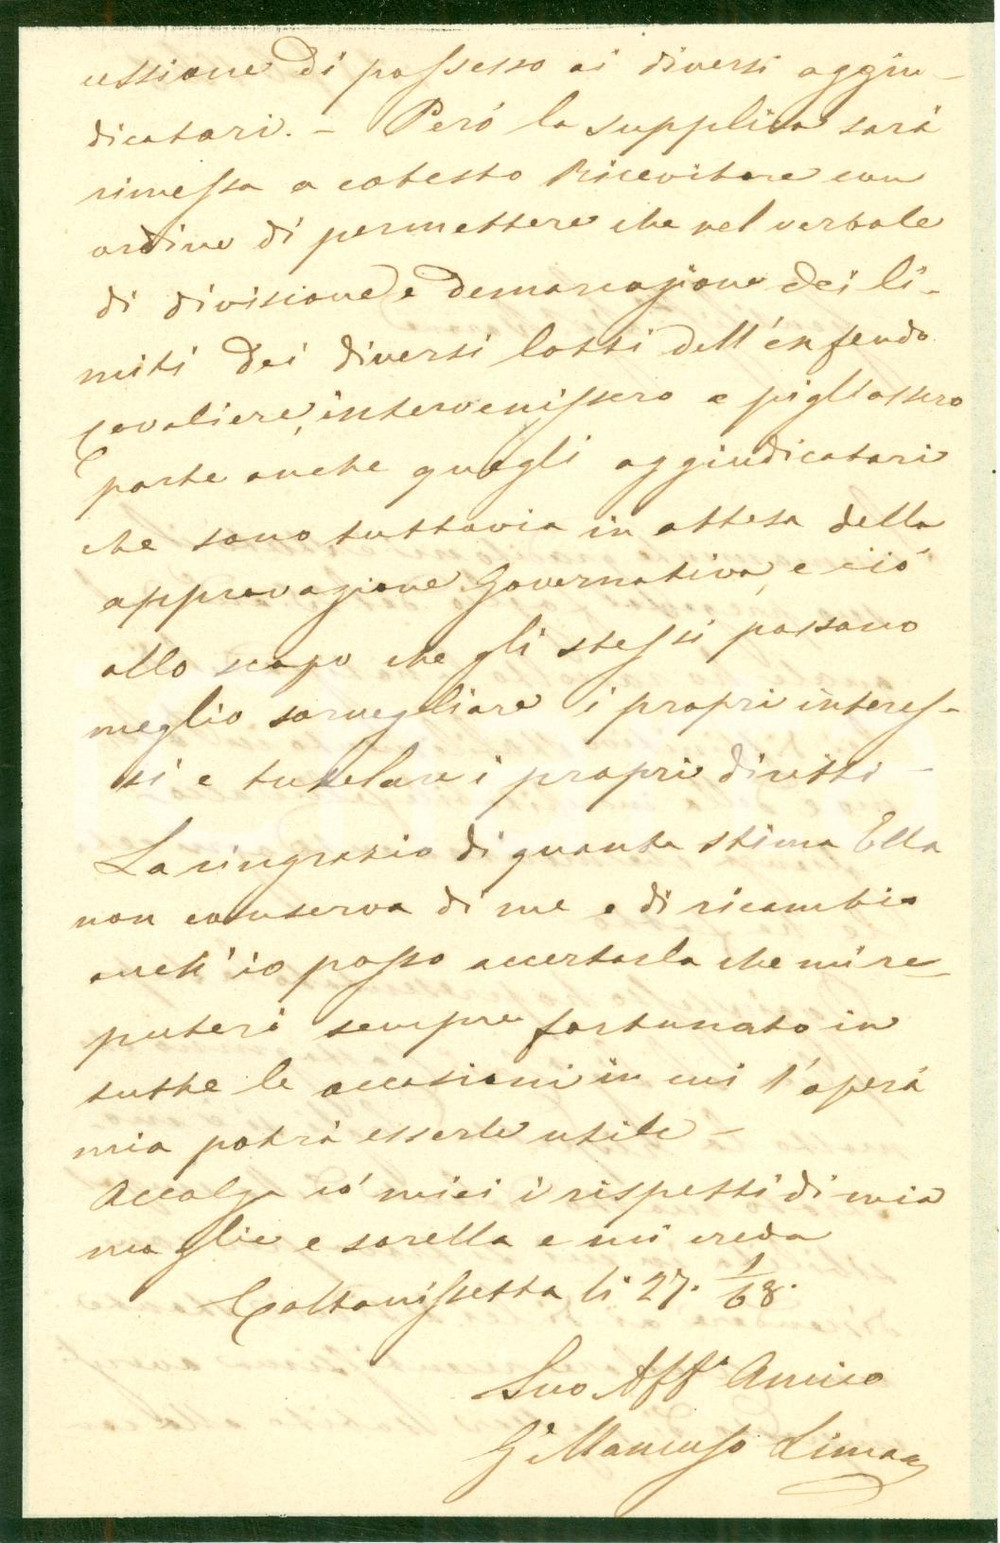 cessione di possesso ai diversi aggiu-
dicatari. - Però la supplica sarà
rimessa a cotesto Ricevitore con
ordine di permettere che nel verbale
di divisione e demarcazione dei li-
miti dei diversi lotti dell'exfeudo
Cavaliere, intervenissero e pigliassero
parte anche quegli aggiudicatari
che sono tuttavia in attesa della
approvazione Governativa, e ciò
allo scopo che gli stessi possano
meglio sorvegliare i propri interes-
si e tutelare i propri diritti -
La ringrazio di quanta stima Ella
non conserva di me e di ricambio
anch'io posso accertarla che mi re-
puterò sempre fortunato in
tutte le occasioni in cui l'opera
mia potrà esserle utile -
Accolga co' miei i rispetti di mia
moglie e sorella e mi creda
Caltanissetta li 27. 1/68.
Suo Aff.° Amico
G. Mancuso Lima